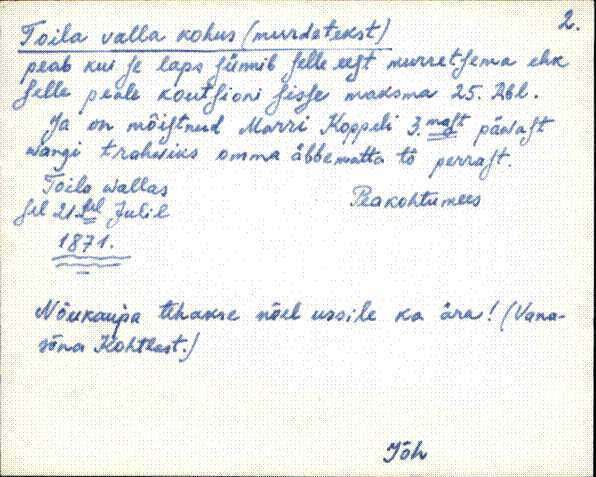 2.
Toila valla kohus (murdetekst)
peab kui se laps sünnib selle eest murretsema ehk
selle peale koutsioni sisse maksma 25. Rbl.
Ja on mõistnud Marri Koppeli 3. mast päwast
wangi trahwiks omma äbbematta tö perrast.
Toila wallas
sel 21sel Julil
1871.
Peakohtumees
Nõukaupa tehakse nõel ussile ka ära! (Vana-
sõna Kohtlast.)
Jõh